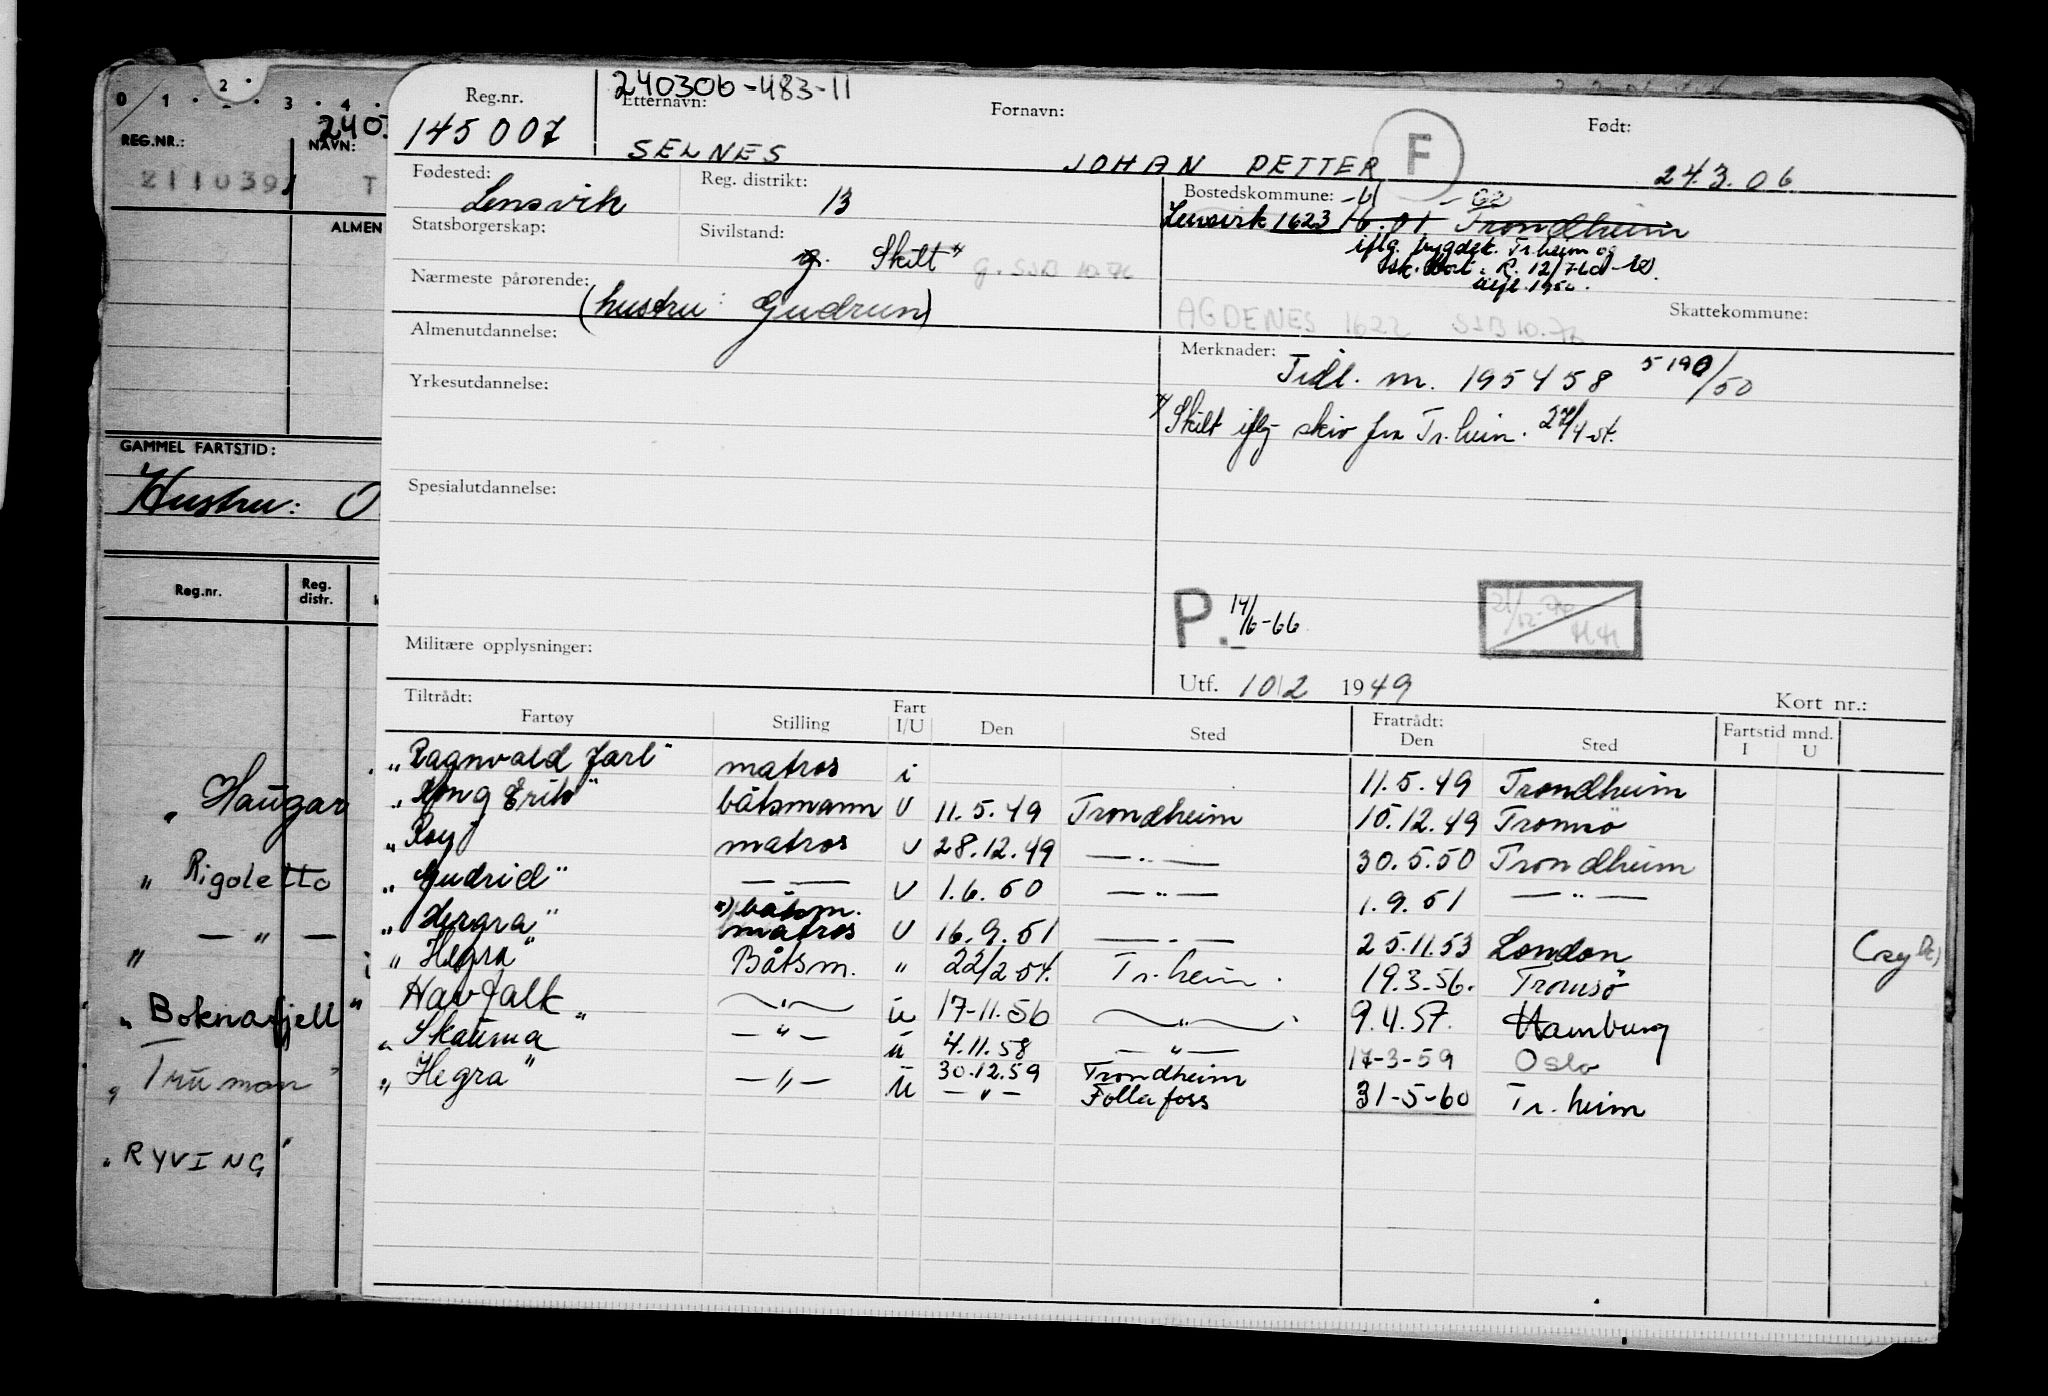 0 1 2 3 4
REG.NR.:
211039
NAVN:
T
ALMEN
GAMMEL FARTSTID:
Hustru: O
Reg.nr.
Reg. distr.
" Haugar
" Rigoletto
" — " —
" Boknafjell "
" Truman "
" RYVING "
240306-483-11
Reg.nr.
145007
Etternavn:
SELNES
Fornavn:
JOHAN PETTER
F
Født:
24.3.06
Fødested:
Lensvik
Reg. distrikt:
13
Bostedskommune:
Lensvik 1623 16.01 Trondheim
iflg. bygdsk. Tr.heim og
Statsborgerskap:
Sivilstand:
g. Skilt x)
g. SSB 10.72
Nærmeste pårørende:
(hustru: Gudrun)
AGDENES 1622 SSB 10.72
Skattekommune:
Almenutdannelse:
Merknader:
Tidl. m. 195458 5190/50
x) Skilt iflg skiv fra Tr.heim. 27/4-51.
Yrkesutdannelse:
Spesialutdannelse:
P. 14/6-66
Militære opplysninger:
Utf. 10/2 1949
Kort nr.:
Tiltrådt:
Fartøy Stilling Fart I/U Den Sted Fratrådt: Den Sted Fartstid mnd. I U
"Ragnvald Jarl" matros i 11.5.49 Trondheim
"Kong Erik" båtsmann U 11.5.49 Trondheim 10.12.49 Tromsø
"Roy" matros U 28.12.49 — " — 30.5.50 Trondheim
"Gudrid" — — U 1.6.50 — " — 1.9.51 — " —
x) båtsm.
"Hergra" matros U 16.9.51 — " — 25.11.53 London
"Hegra" Båtsm. " 22/2-54. Tr.heim. 19.3-56. Tromsø
Havfalk " — " — ü 17-11.56 — " — 9.4.57. Hamburg
" Skauma — " — ü 4.11.58 — " — 17-3-59 Oslo
" Hegra " — " — ü 30.12.59 Trondheim
— " — Follafoss 31-5-60 Tr.heim